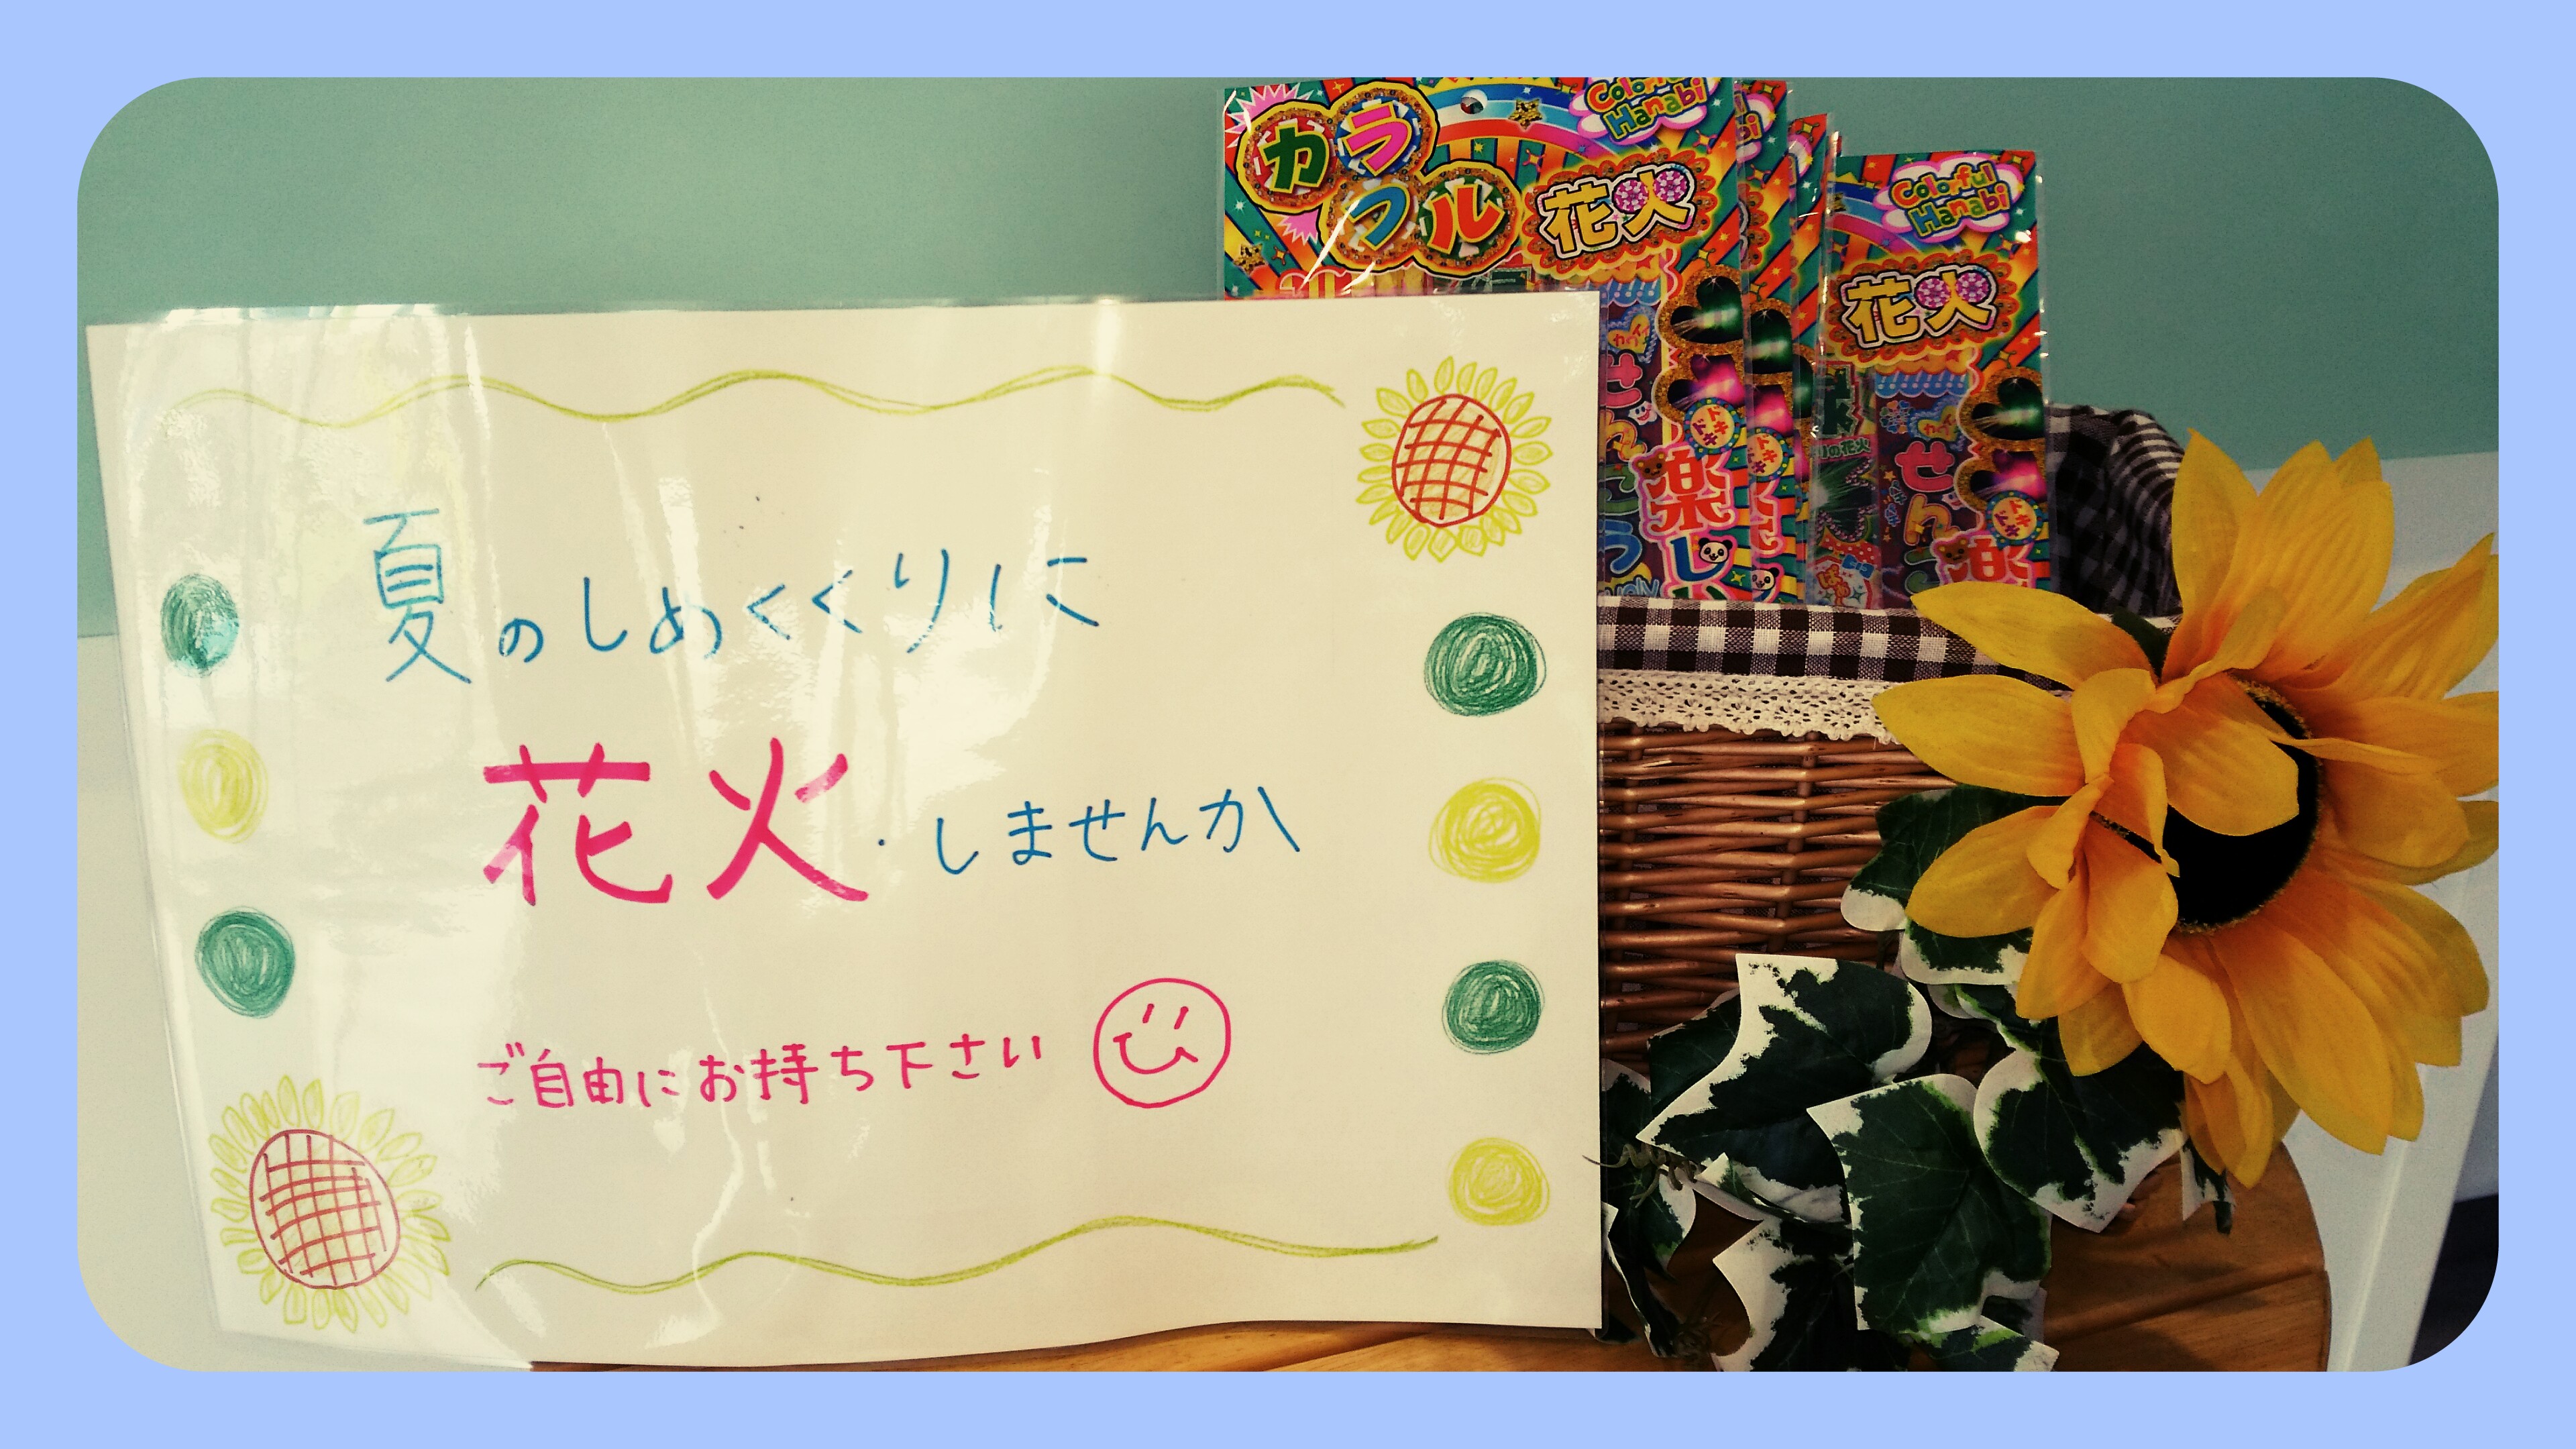 夏のしめくくりに
花火・しませんか
ご自由にお持ち下さい
カラフル
花火
Colorful
Hanabi
楽し
ドキドキ
Colorful
Hanabi
花火
ドキドキ
楽